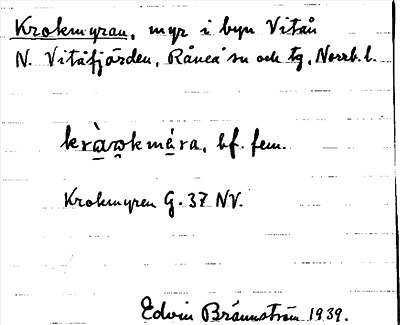 Krokmyran, myr i byn Vitån
N. Vitåfjärden, Råneå sn och tg, Norrb. l.
kràɷkmýra, bf. fem.
Krokmyren G. 37 NV.
Edvin Brännström 1939.